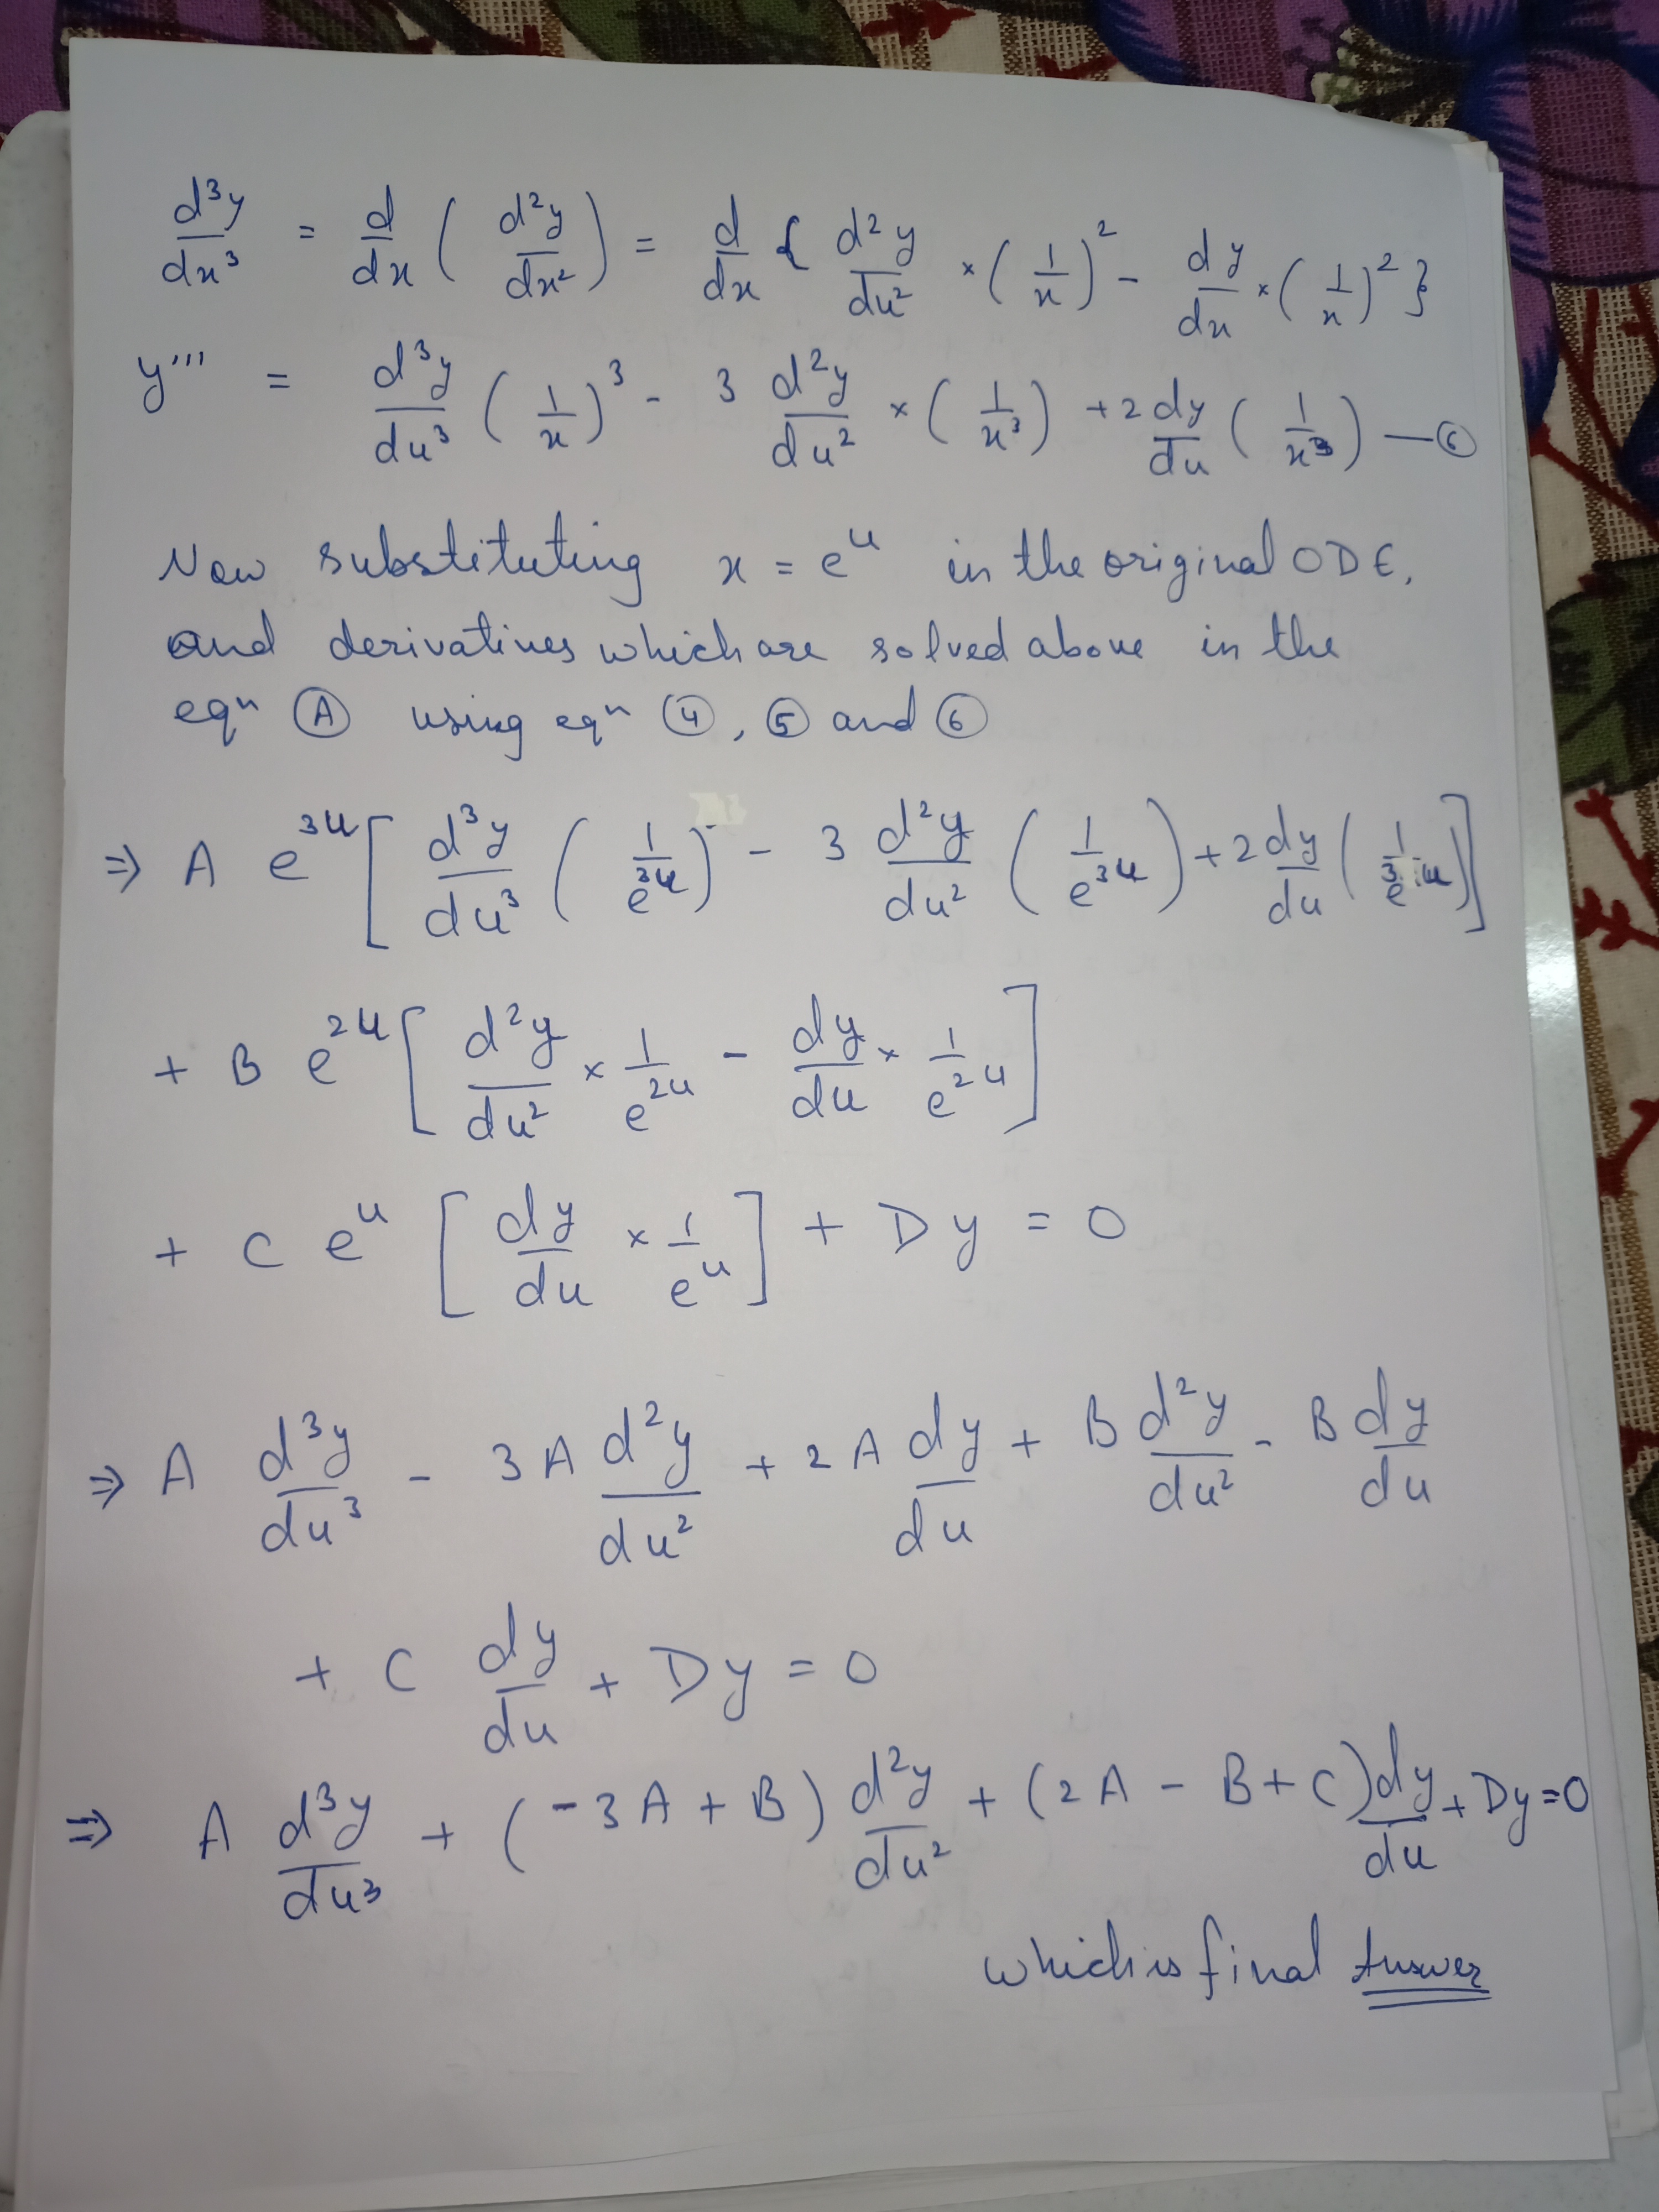 d³y/dx³ = d/dx ( d²y/dx² ) = d/dx { d²y/du² × ( 1/x )² - dy/du × ( 1/x )² }
y''' = d³y/du³ ( 1/x )³ - 3 d²y/du² × ( 1/x³ ) + 2 dy/du ( 1/x³ ) — ⑥
Now substituting x = eᵘ in the original ODE,
and derivatives which are solved above in the
eqⁿ Ⓐ using eqⁿ ④, ⑤ and ⑥
⇒ A e³ᵘ [ d³y/du³ ( 1/e³ᵘ ) - 3 d²y/du² ( 1/e³ᵘ ) + 2 dy/du ( 1/e³ᵘ ) ]
+ B e²ᵘ [ d²y/du² × 1/e²ᵘ - dy/du × 1/e²ᵘ ]
+ C eᵘ [ dy/du × 1/eᵘ ] + Dy = 0
⇒ A d³y/du³ - 3A d²y/du² + 2A dy/du + B d²y/du² - B dy/du
+ C dy/du + Dy = 0
⇒ A d³y/du³ + (-3A + B) d²y/du² + (2A - B + C) dy/du + Dy = 0
which is final Answer